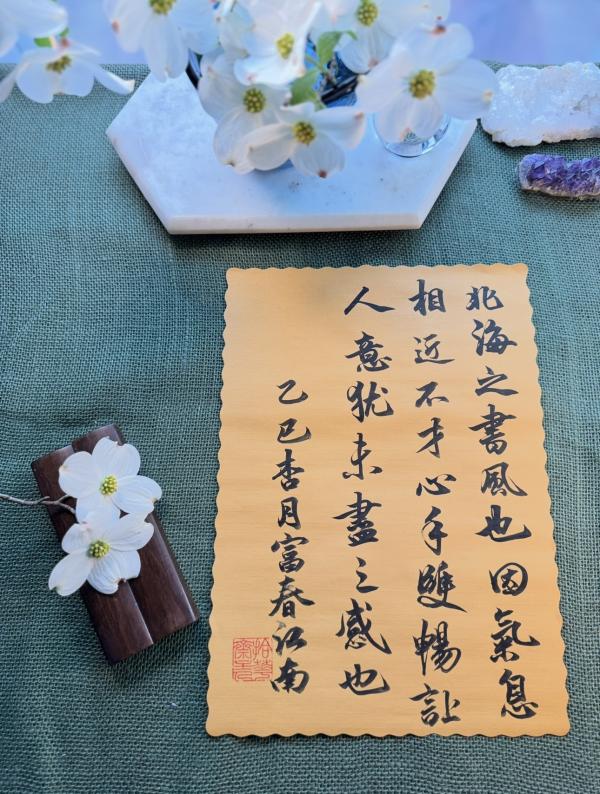 北海之書風也因氣息
相近不才心手雙暢让
人意犹未盡之感也
乙巳杏月富春江南